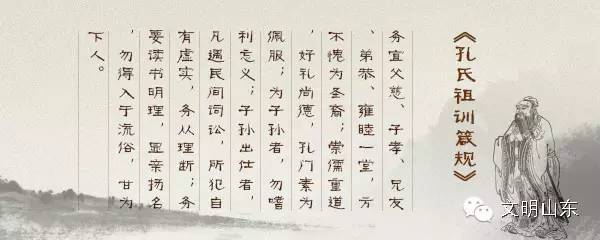 《孔氏祖训箴规》
务宜父慈、子孝、兄友
、弟恭、雍睦一堂，方
不愧为圣裔；崇儒重道
，好礼尚德，孔门素为
佩服；为子孙者，勿嗜
利忘义；子孙出仕者，
凡遇民间词讼，所犯自
有虚实，务从理断；务
要读书明理，显亲扬名
，勿得入于流俗，甘为
下人。
文明山东